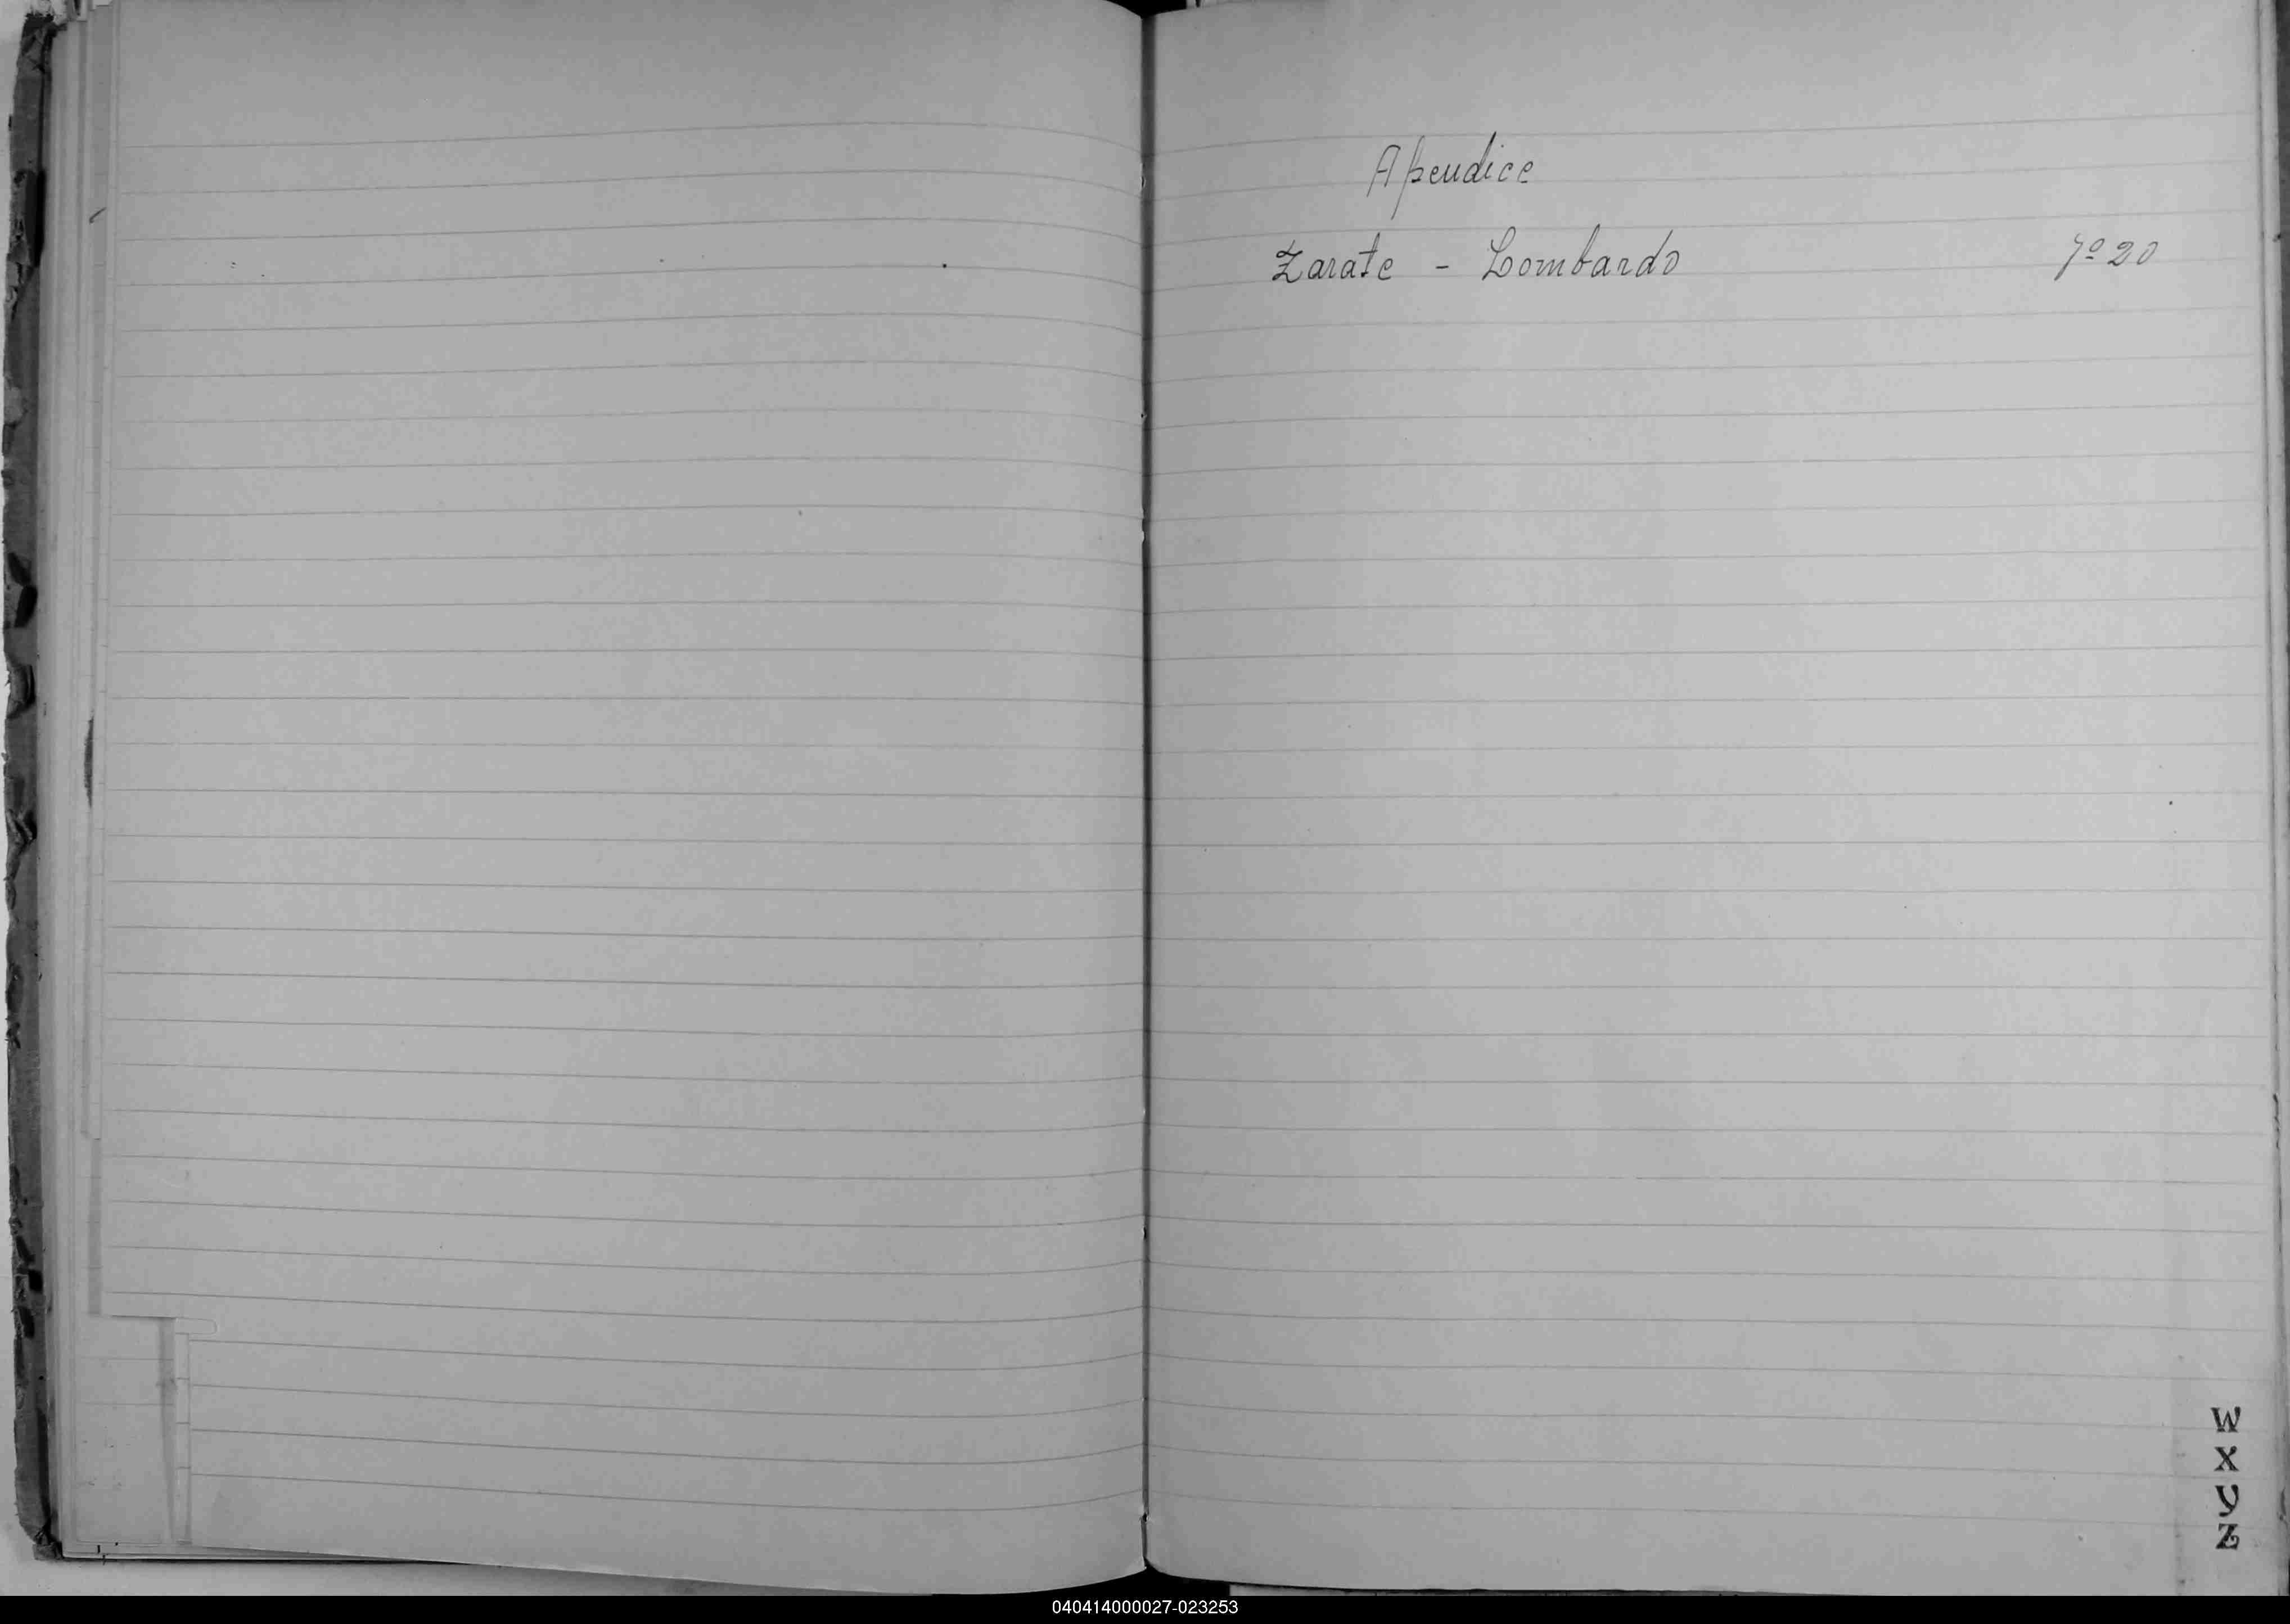 Apendice
Zarate - Lombardo fº 20
W
X
Y
Z
040414000027-023253